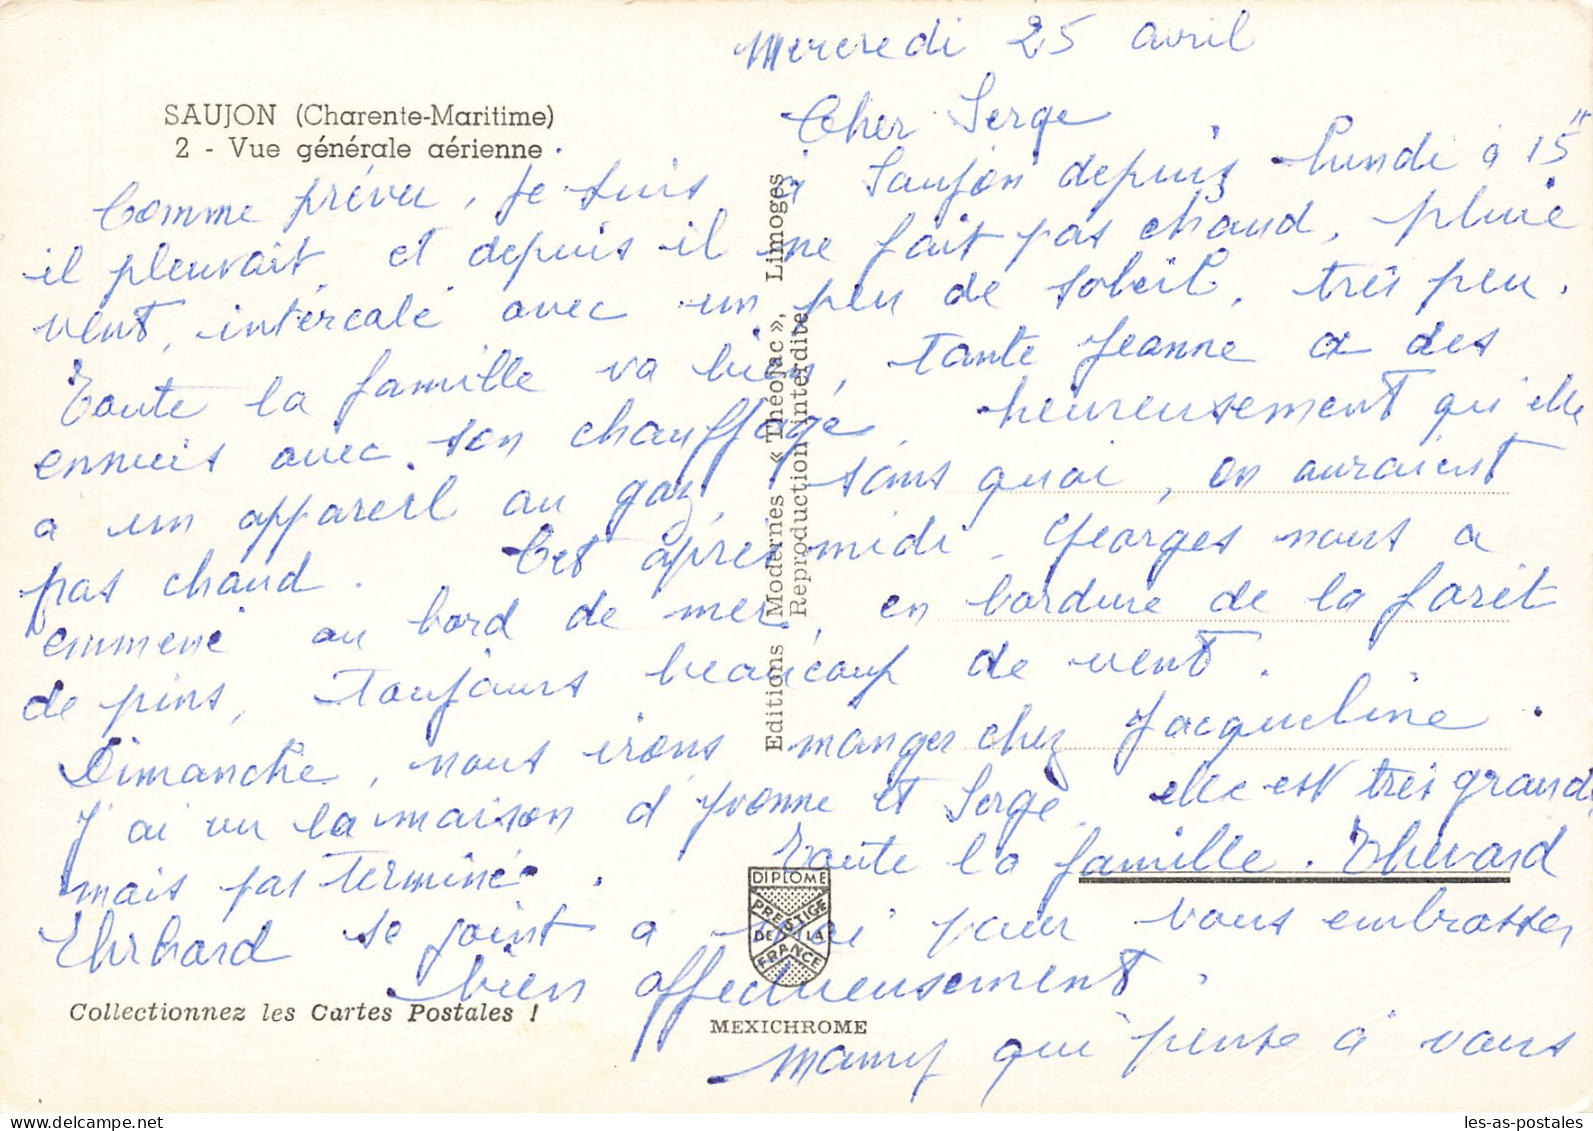 Mercredi 25 avril
SAUJON (Charente-Maritime)
2 - Vue générale aérienne
Cher Serge
Comme prévu, je suis à Saujon depuis lundi à 15 H
il pleuvait et depuis il ne fait pas chaud, pluie
vent, intercalé avec un peu de soleil, très peu.
Toute la famille va bien, Tante Jeanne a des
ennuis avec son chauffage, heureusement qu'elle
a un appareil au gaz, sans quoi, on auraient
pas chaud. Cet après midi, Georges nous a
emmené au bord de mer, en bordure de la forêt
de pins, toujours beaucoup de vent.
Dimanche, nous irons manger chez Jacqueline.
J'ai vu la maison d'Yvonne et Serge, elle est très grande
mais pas terminé. Toute la famille.
Ehrhard se joint à moi pour vous embrasser
bien affectueusement.
Mamy qui pense à vous
Editions Modernes « Théojac », Limoges
Reproduction interdite
DIPLOME
PRESTIGE
DE LA
FRANCE
Collectionnez les Cartes Postales !
MEXICHROME
les-as-postales